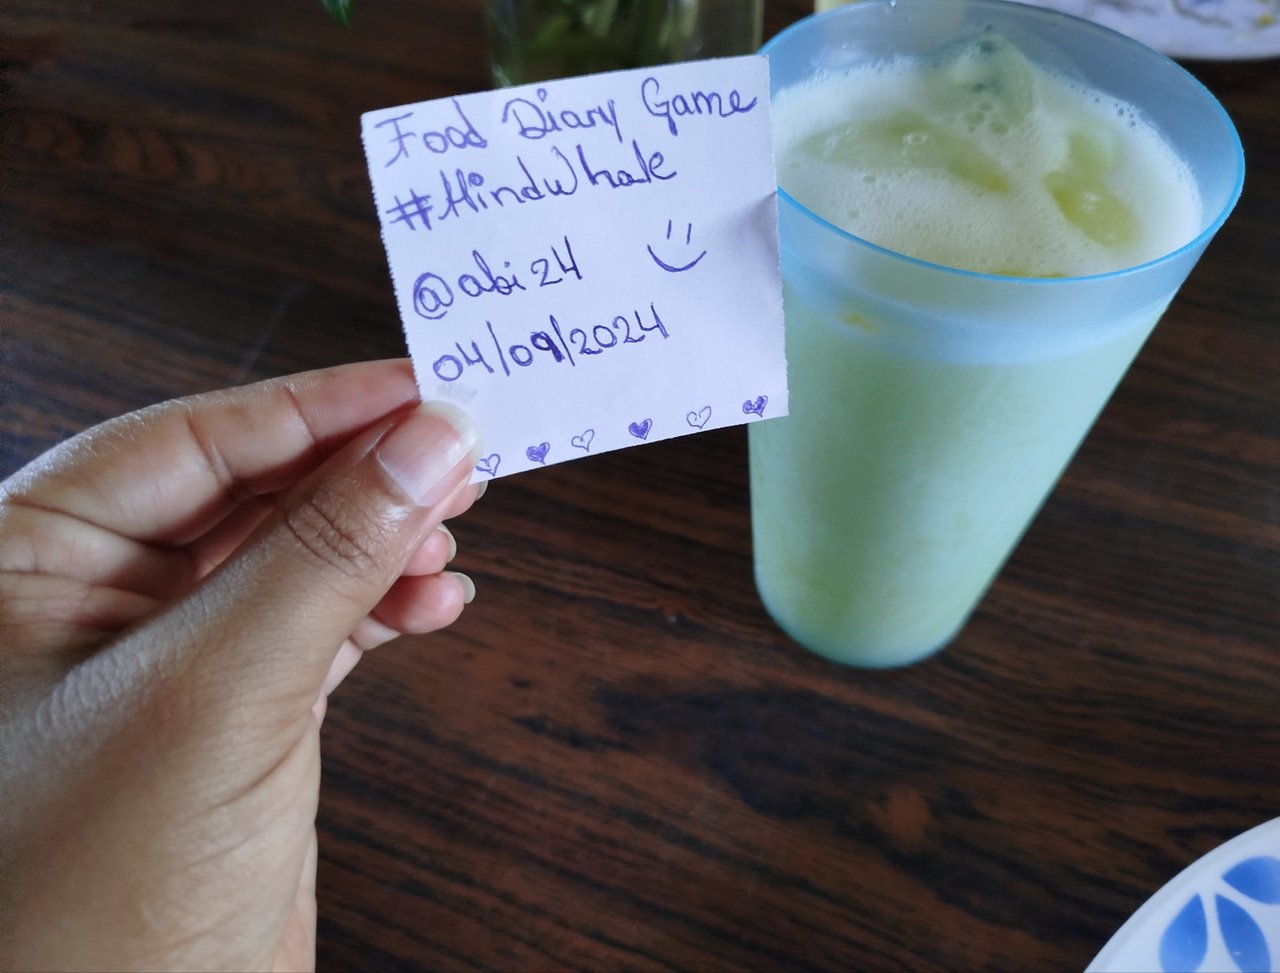 Food Diary Game
#HindWhale
@abi24
04/09/2024